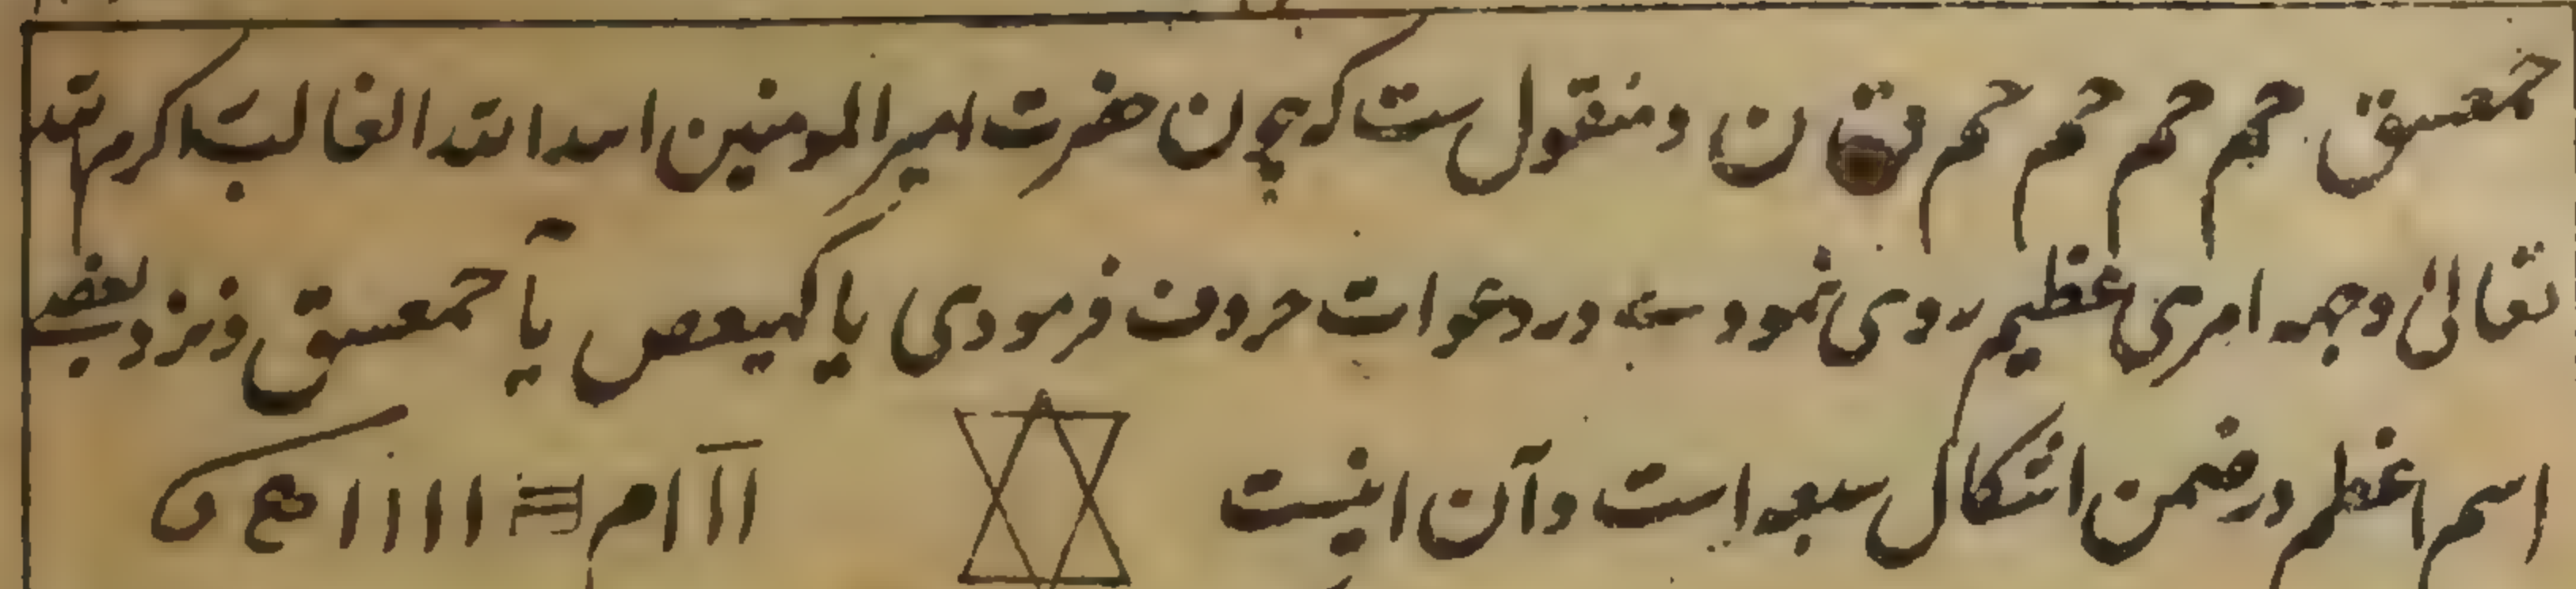 حمعسق حم حم حم حم ق ن و منقول ست که چون حضرت امیر المومنین اسد الله الغالب کرم الله
تعالی وجهه امری عظیم روی نمودی در دعوات حروف فرمودی یا کهیعص یا حمعسق و نزد بعضی
اسم اعظم در ضمن اشکال سبعه است و آن اینست